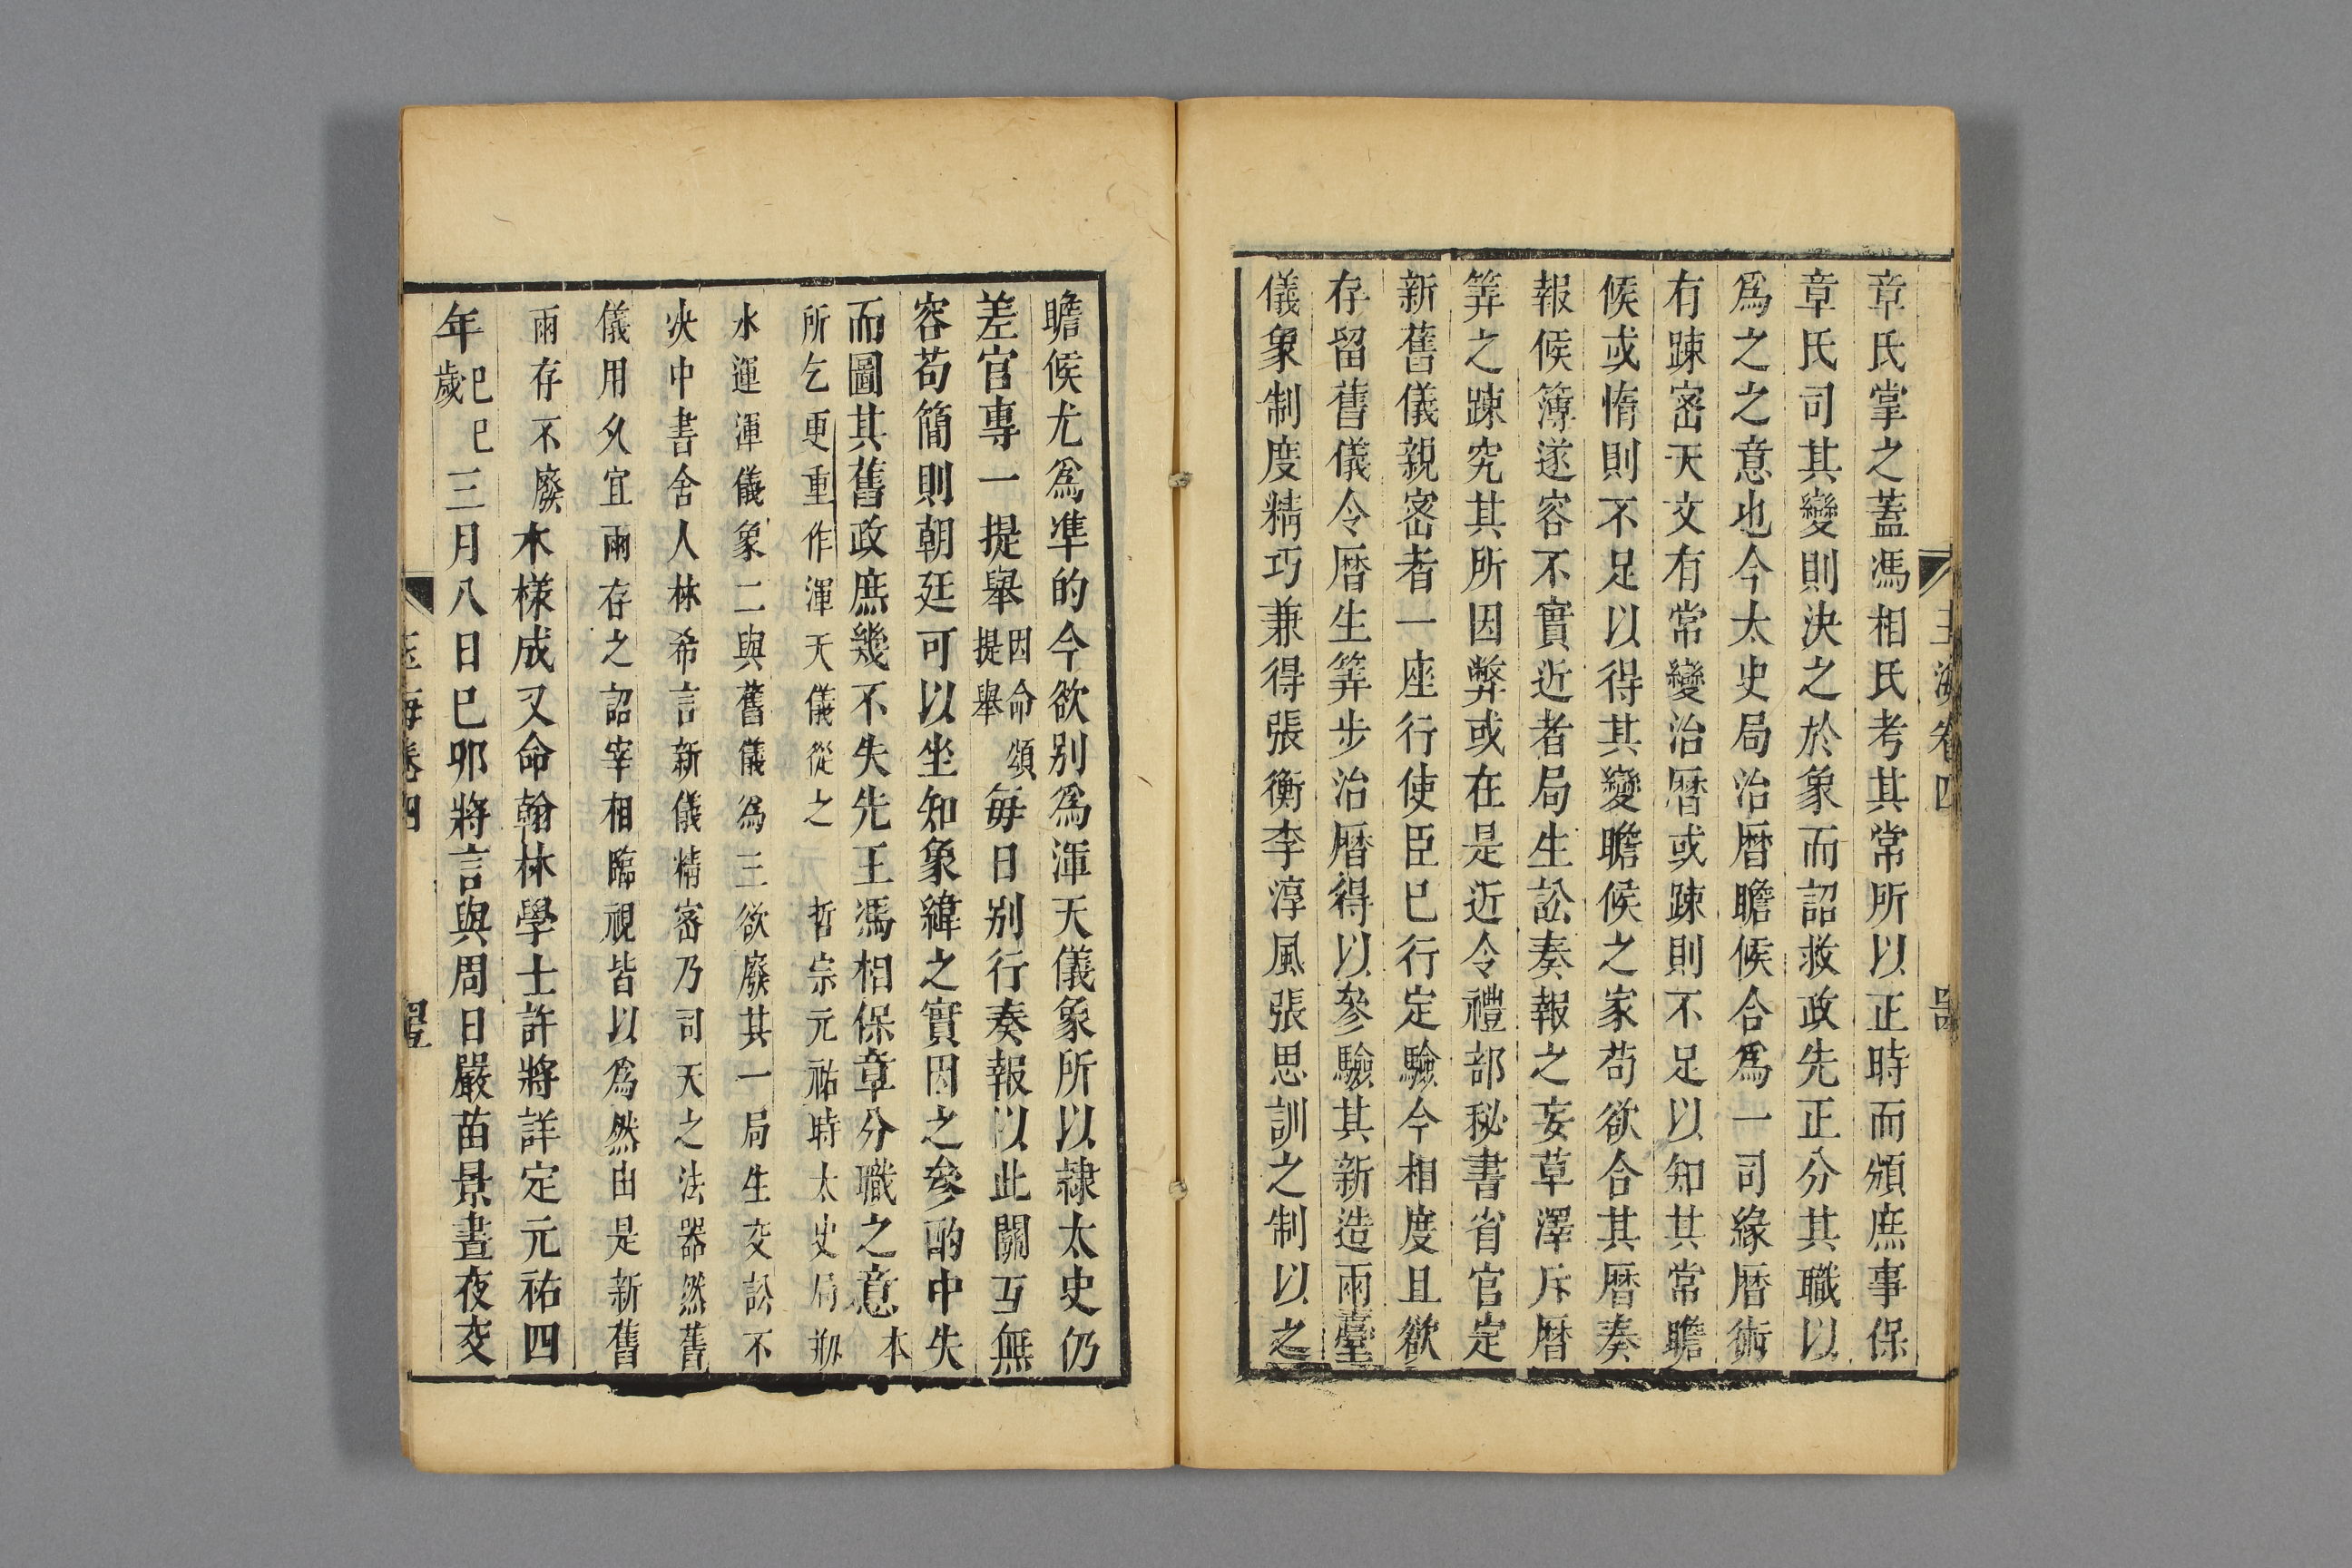 章氏掌之蓋馮相氏考其常所以正時而頒庶事保
章氏司其變則決之於象而詔救政先正分其職以
爲之之意也今太史局治曆瞻候合爲一司緣曆術
有踈密天文有常變治曆或踈則不足以知其常瞻
候或惰則不足以得其變瞻候之家苟欲合其曆奏
報候簿遂容不實近者局生訟奏報之妄草澤斥曆
筭之踈究其所因弊或在是近令禮部秘書省官定
新舊儀親密者一座行使臣已行定驗今相度且欲
存留舊儀令曆生筭步治曆得以參驗其新造兩臺
儀象制度精巧兼得張衡李淳風張思訓之制以之
瞻候尤爲準的今欲別爲渾天儀象所以隷太史仍
差官專一提舉因命頌提舉每日別行奏報以此關互無
容苟簡則朝廷可以坐知象緯之實因之參酌中失
而圖其舊政庶幾不失先王馮相保章分職之意本
所乞更重作渾天儀從之 哲宗元祐時太史局剏
水運渾儀象二與舊儀爲三欲廢其一局生交訟不
決中書舍人林希言新儀精密乃司天之法器然舊
儀用久宜兩存之詔宰相臨視皆以爲然由是新舊
兩存不廢木樣成又命翰林學士許將詳定元祐四
年己巳歲三月八日己卯將言與周日嚴苗景晝夜交
玉海卷四
玉海卷四